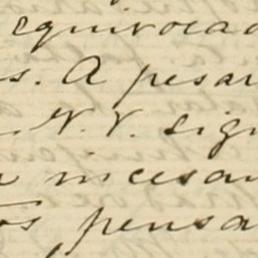 equivocad
s. A pesar
N. V. sigu
incesan
os pensa